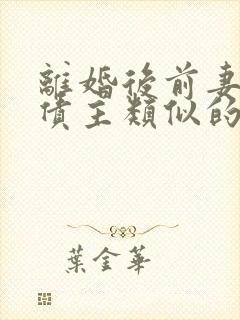 離婚後前妻
債主類似的
葉金華